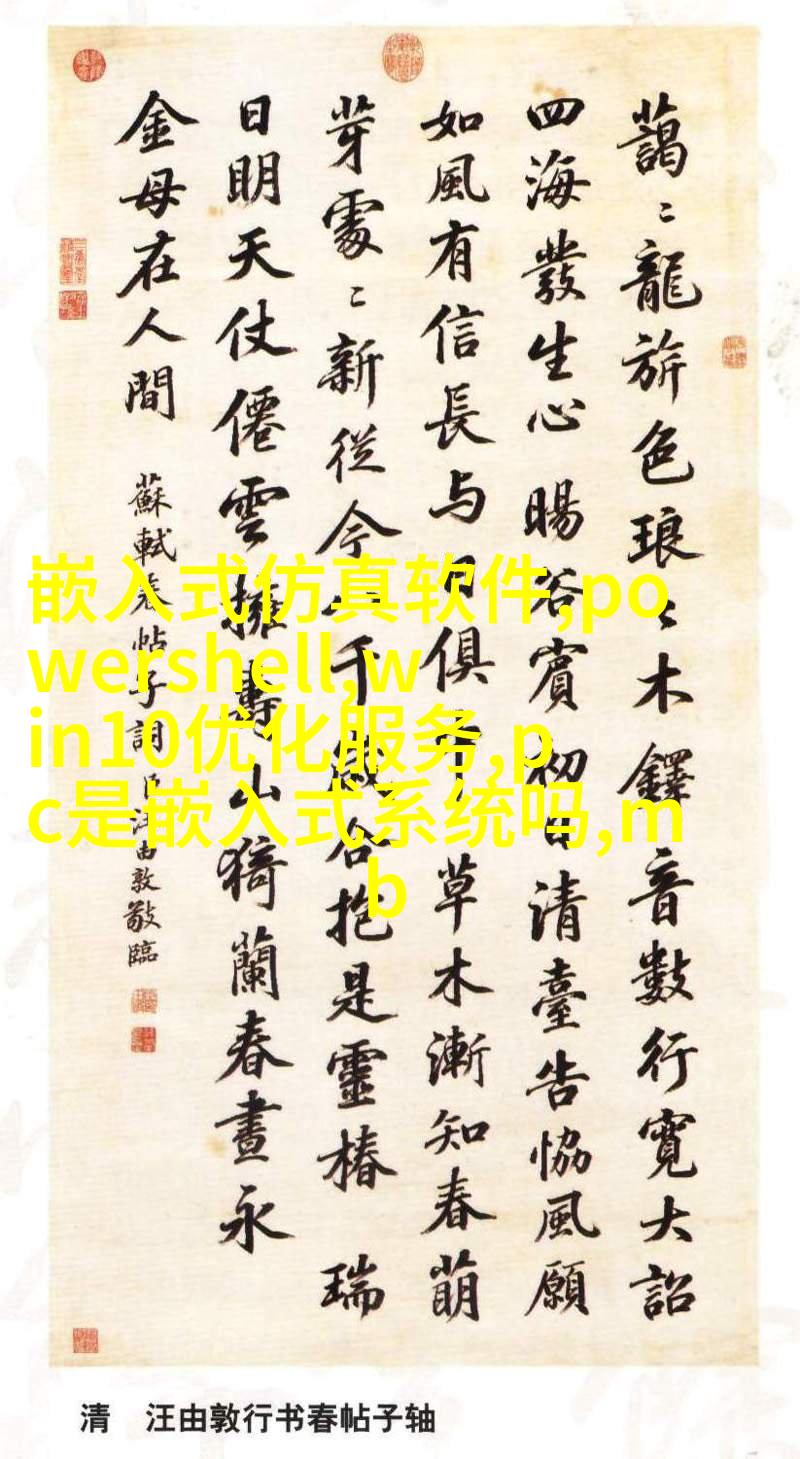 藹〻龍旂色琅〻木鐸音數行寬大詔
四海發生心 暘谷賓初日清臺告協風願
如風有信長與日俱中 草木漸知春萌
芽處〻新從今八千歲合抱是靈椿 瑞
日明天仗僊雲擁壽山猗蘭春晝永
金母在人間
蘇軾春帖子詞 臣汪由敦敬臨
嵌入式仿真软件,po
wershell,w
in10优化服务,p
c是嵌入式系统吗,m
b
清 汪由敦行书春帖子轴